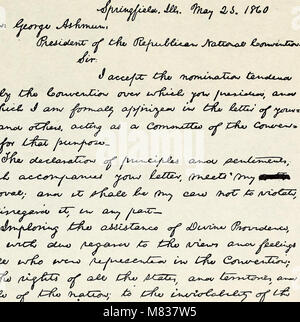 Springfield, Ills. May 23. 1860
George Ashmun.
President of the Republican National Convention
Sir:
I accept the nomination tendered
by the Convention over which you presided, and
which I am formally apprized in the letter of yours
and others, acting as a committee of the conven-
for that purpose—
The declaration of principles and sentiments,
h accompanies your letter, meets my
oval; and it shall be my care not to violate,
isregard it, in any part—
Imploring the assistance of Divine Providence,
with due regard to the views and feelings
all who were represented in the Convention;
the rights of all the states, and territories, and
le of the nation; to the inviolability of the
alamy
Image ID: M837W5
www.alamy.com